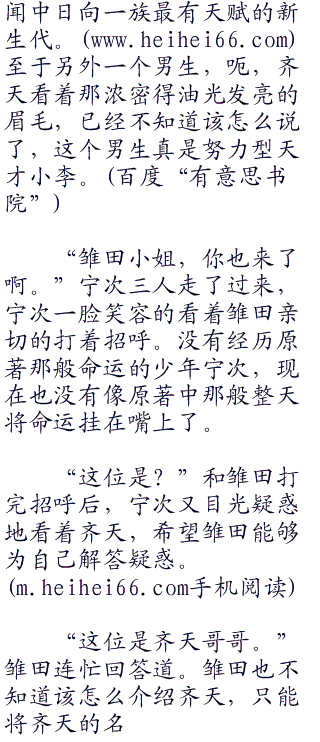 闻中日向一族最有天赋的新
生代。(www.heihei66.com)
至于另外一个男生，呃，齐
天看着那浓密得油光发亮的
眉毛，已经不知道该怎么说
了，这个男生真是努力型天
才小李。(百度“有意思书
院”)
“雏田小姐，你也来了
啊。”宁次三人走了过来，
宁次一脸笑容的看着雏田亲
切的打着招呼。没有经历原
著那般命运的少年宁次，现
在也没有像原著中那般整天
将命运挂在嘴上了。
“这位是？”和雏田打
完招呼后，宁次又目光疑惑
地看着齐天，希望雏田能够
为自己解答疑惑。
(m.heihei66.com手机阅读)
“这位是齐天哥哥。”
雏田连忙回答道。雏田也不
知道该怎么介绍齐天，只能
将齐天的名